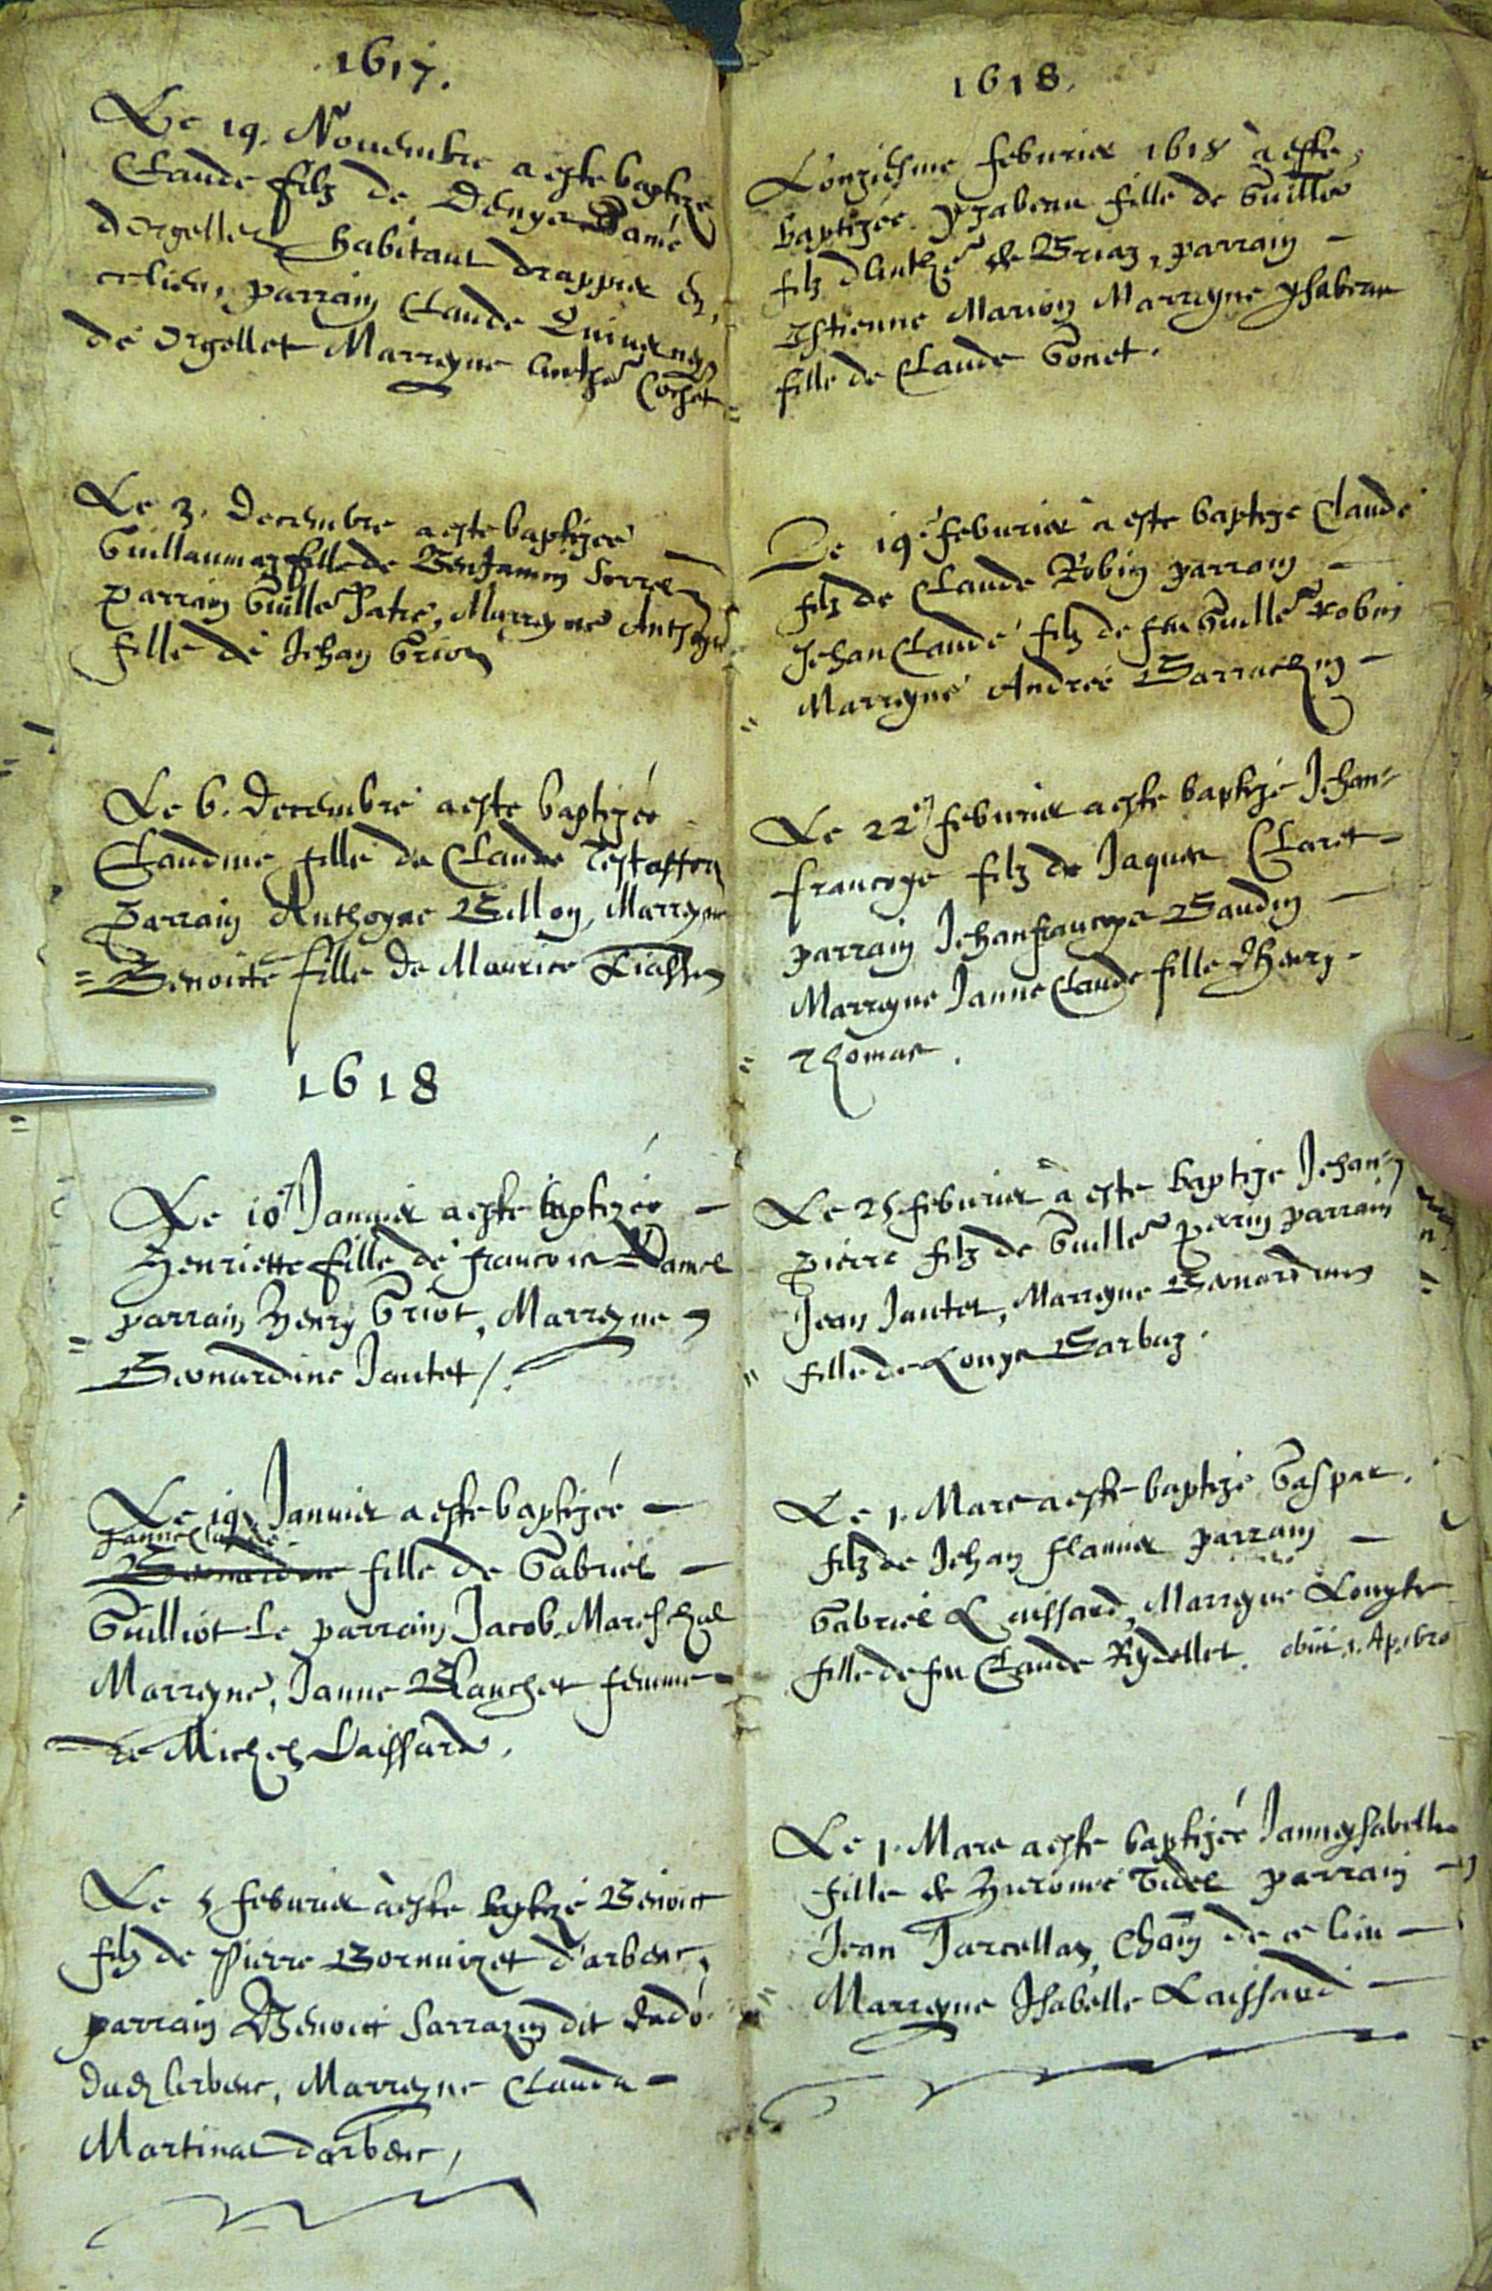 1617.
Le 19. Nouembre a este baptizé
Claude filz de Denys Damé
dorgellet habitant drappier en
ce lieu, parrain Claude
de Orgellet Marreyne Anthe Cochet
Le 3. Decembre a este baptizeé
Guillauma fille de Benjamin Sorrel
Parrain Guille Patre, Marreyne Anthoyne
fille de Jehan Griot
Le 6. Decembre a este baptizeé
Claudine fille de Claude
Parrain Anthoyne Billon, Marreyne
Benoicte fille de Maurice
1618
Le 10 Januier a este baptizeé
Henriette fille de francois Damel
parrain Henry Griot, Marreyne
Bernardine Jantet /.
Le 19 Januier a este baptizeé
Janneclaude
Bernardine fille de Gabriel
Guilliot Le parrain Jacob Mareschal
Marreyne, Janne Blanchet femme
de Michel Daissard.
Le 5 feburier a este baptizé Benoict
filz de Pierre Bornuizet d'arbenc,
parrain Benoict Sarrazin dit
Arbenc, Marreyne Clauda
Martinat darbenc,
1618.
Lonziesme feburier 1618 a este
baptizeé. Ysabeau fille de Guille
filz dAnthe de Briaz, parrain
Estienne Marion Marreyne Ysabeau
fille de Claude Gonet.
Le 19. feburier a este baptize Claude
filz de Claude Robin parrain
Jehan Claude filz de feu Guille Robin
Marreyne Andreé Sarrachin
Le 22 feburier a este baptizé Jehan=
francoys filz de Jaques Claret
parrain Jehanfrancoys Baudin
Marreyne Janne Claude fille dHenry
Thomas.
Le 25 feburier a este baptize Jehan=
pierre filz de Guille perrin parrain
Jean Jantet, Marreyne Bernardine
fille de Louys Barbaz.
Le 1. Mars a este baptizé Gaspar.
filz de Jehan flanier parrain
Gabriel Laissard, Marreyne Louyse
fille de feu Claude Rydellet. obiit 1. Ap.
Le 1. Mars a este baptizeé Janneysabelle
fille de Hierome parrain
Jean Jarcellaz, Chañ de ce lieu
Marreyne Isabelle Laissard